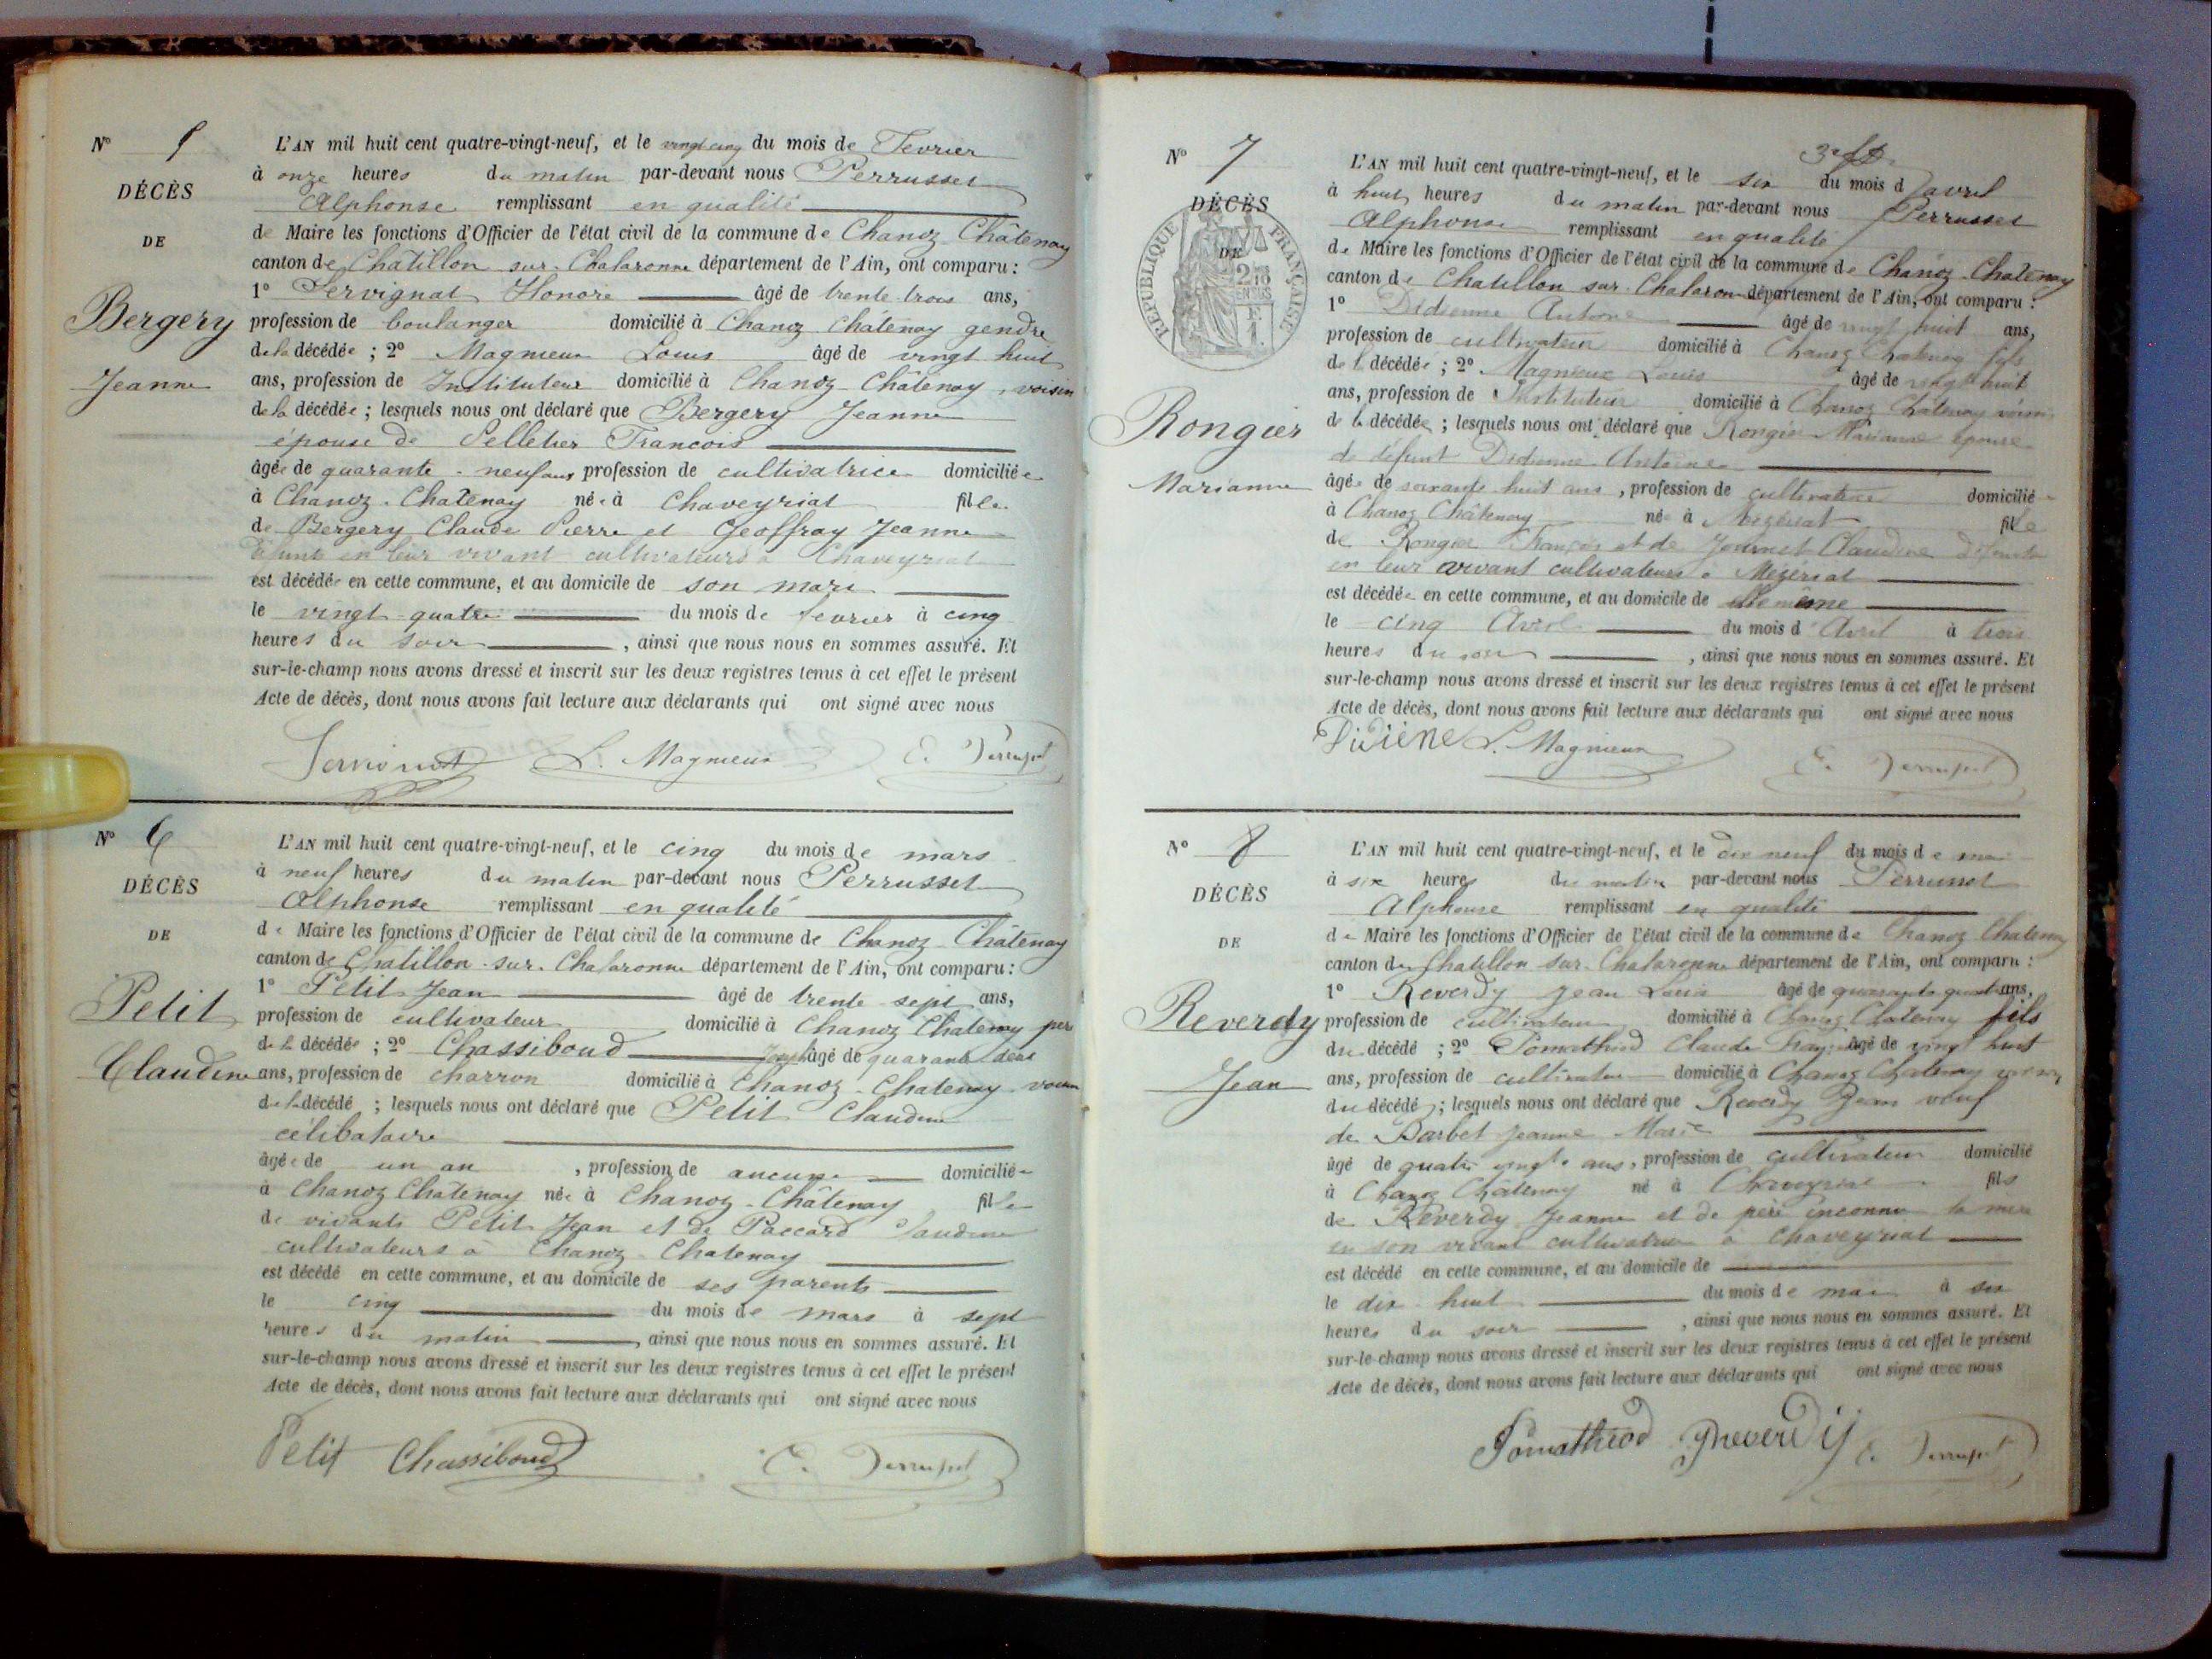 N° 5
DÉCÈS
DE
Bergery
Jeanne
L'AN mil huit cent quatre-vingt-neuf, et le vingt cinq du mois de Fevrier
à onze heures du matin par-devant nous Perrusset
Alphonse remplissant en qualité
de Maire les fonctions d'Officier de l'état civil de la commune de Chanoz-Châtenay
canton de Chatillon-sur-Chalaronne département de l'Ain, ont comparu :
1° Servignat Honoré âgé de trente-trois ans,
profession de boulanger domicilié à Chanoz-Châtenay gendre
de la décédée ; 2° Magnieux Louis âgé de vingt huit
ans, profession de Instituteur domicilié à Chanoz-Châtenay, voisin
de la décédée ; lesquels nous ont déclaré que Bergery Jeanne
épouse de Pelletier François
âgée de quarante-neuf ans profession de cultivatrice domiciliée
à Chanoz-Chatenay née à Chaveyriat fille
de Bergery Claude Pierre et Geoffray Jeanne
défunts en leur vivant cultivateurs à Chaveyriat
est décédée en cette commune, et au domicile de son mari
le vingt-quatre du mois de fevrier à cinq
heures du soir, ainsi que nous nous en sommes assuré. Et
sur-le-champ nous avons dressé et inscrit sur les deux registres tenus à cet effet le présent
Acte de décès, dont nous avons fait lecture aux déclarants qui ont signé avec nous
Servignat L. Magnieux
N° 6
DÉCÈS
DE
Petit
Claudine
L'AN mil huit cent quatre-vingt-neuf, et le cinq du mois de mars
à neuf heures du matin par-devant nous Perrusset
Alphonse remplissant en qualité
de Maire les fonctions d'Officier de l'état civil de la commune de Chanoz-Châtenay
canton de Chatillon-sur-Chalaronne département de l'Ain, ont comparu :
1° Petit Jean âgé de trente-sept ans,
profession de cultivateur domicilié à Chanoz Chatenay père
de la décédée ; 2° Chassiboud Joseph âgé de quarante deux
ans, profession de charron domicilié à Chanoz-Chatenay voisin
de la décédé ; lesquels nous ont déclaré que Petit Claudine
célibataire
âgée de un an, profession de aucune domiciliée
à Chanoz Châtenay née à Chanoz-Châtenay fille
de vivants Petit Jean et de Paccard Claudine
cultivateurs à Chanoz-Chatenay
est décédé en cette commune, et au domicile de ses parents
le cinq du mois de mars à sept
heures du matin, ainsi que nous nous en sommes assuré. Et
sur-le-champ nous avons dressé et inscrit sur les deux registres tenus à cet effet le présent
Acte de décès, dont nous avons fait lecture aux déclarants qui ont signé avec nous
Petit Chassiboud
N° 7
DÉCÈS
DE
RÉPUBLIQUE FRANÇAISE
2/10
EN SUS
Rongier
Marianne
L'AN mil huit cent quatre-vingt-neuf, et le six du mois d'avril
à huit heures du matin par-devant nous Perrusset
Alphonse remplissant en qualité
de Maire les fonctions d'Officier de l'état civil de la commune de Chanoz-Chatenay
canton de Chatillon sur-Chalaronne département de l'Ain, ont comparu :
1° Didienne Antoine âgé de vingt huit ans,
profession de cultivateur domicilié à Chanoz Chatenay fils
de la décédée ; 2° Magnieux Louis âgé de vingt huit
ans, profession de Instituteur domicilié à Chanoz Châtenay voisin
de la décédée ; lesquels nous ont déclaré que Rongier Marianne épouse
de défunt Didienne Antoine
âgée de soixante huit ans, profession de cultivatrice domiciliée
à Chanoz Châtenay née à Mézériat fille
de Rongier François et de Journet Claudine défunts
en leur vivant cultivateurs à Mézériat
est décédée en cette commune, et au domicile de elle même
le cinq Avril du mois d'Avril à trois
heures du soir, ainsi que nous nous en sommes assuré. Et
sur-le-champ nous avons dressé et inscrit sur les deux registres tenus à cet effet le présent
Acte de décès, dont nous avons fait lecture aux déclarants qui ont signé avec nous
Didiène L. Magnieux
N° 8
DÉCÈS
DE
Reverdy
Jean
L'AN mil huit cent quatre-vingt-neuf, et le dix neuf du mois de mai
à six heures du matin par-devant nous Perrusset
Alphonse remplissant en qualité
de Maire les fonctions d'Officier de l'état civil de la commune de Chanoz Chatenay
canton de Chatillon-sur-Chalaronne département de l'Ain, ont comparu :
1° Reverdy Jean Louis âgé de quarante quatre ans,
profession de cultivateur domicilié à Chanoz Chatenay fils
du décédé ; 2° Pomathiod Claude âgé de vingt huit
ans, profession de cultivateur domicilié à Chanoz Chatenay voisin
du décédé ; lesquels nous ont déclaré que Reverdy Jean veuf
de Barbet Jeanne Marie
âgé de quatre vingts ans, profession de cultivateur domicilié
à Chanoz Châtenay né à Chaveyriat fils
de Reverdy Jeanne et de père inconnu la mère
en son vivant cultivatrice à Chaveyriat
est décédé en cette commune, et au domicile de
le dix-huit du mois de mai à six
heures du soir, ainsi que nous nous en sommes assuré. Et
sur-le-champ nous avons dressé et inscrit sur les deux registres tenus à cet effet le présent
Acte de décès, dont nous avons fait lecture aux déclarants qui ont signé avec nous
Pomathiod Reverdy